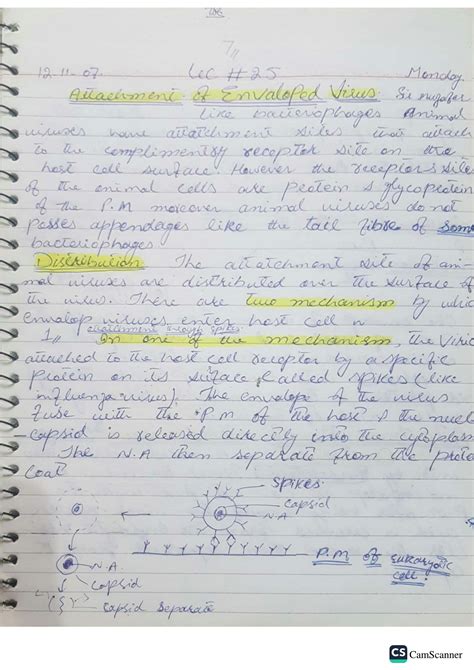 7,,
12.11.07. Lec # 25 Monday
Attachment of Envaloped Virus. Sir
Like bacteriophages animal
viruses have attatchment sites that attach
to the complimentry receptor site on the
host cell surface. However the receptors sites
of the animal cells are protein & glycoprotein
of the P.M moreover animal viruses do not
posses appendages like the tail fibre of some
bacteriophages.
Distribution: The attatchment site of ani-
mal viruses are distributed over the surface of
the virus. There are two mechanism by which
envalop viruses enter host cell
attatchment through spikes:
1,, In one of the mechanism, the
attached to the host cell receptor by a specific
protein on its surface called spikes (like
influenza virus). The envalope of the virus
fuse with the P.M of the host & the nucl
-capsid is released directly into the cytoplasm
The N.A then separate from the prote
coat
Spikes.
capsid
N.A.
N.A.
P.M of eukaryotic
cell.
capsid
capsid separate
CS CamScanner